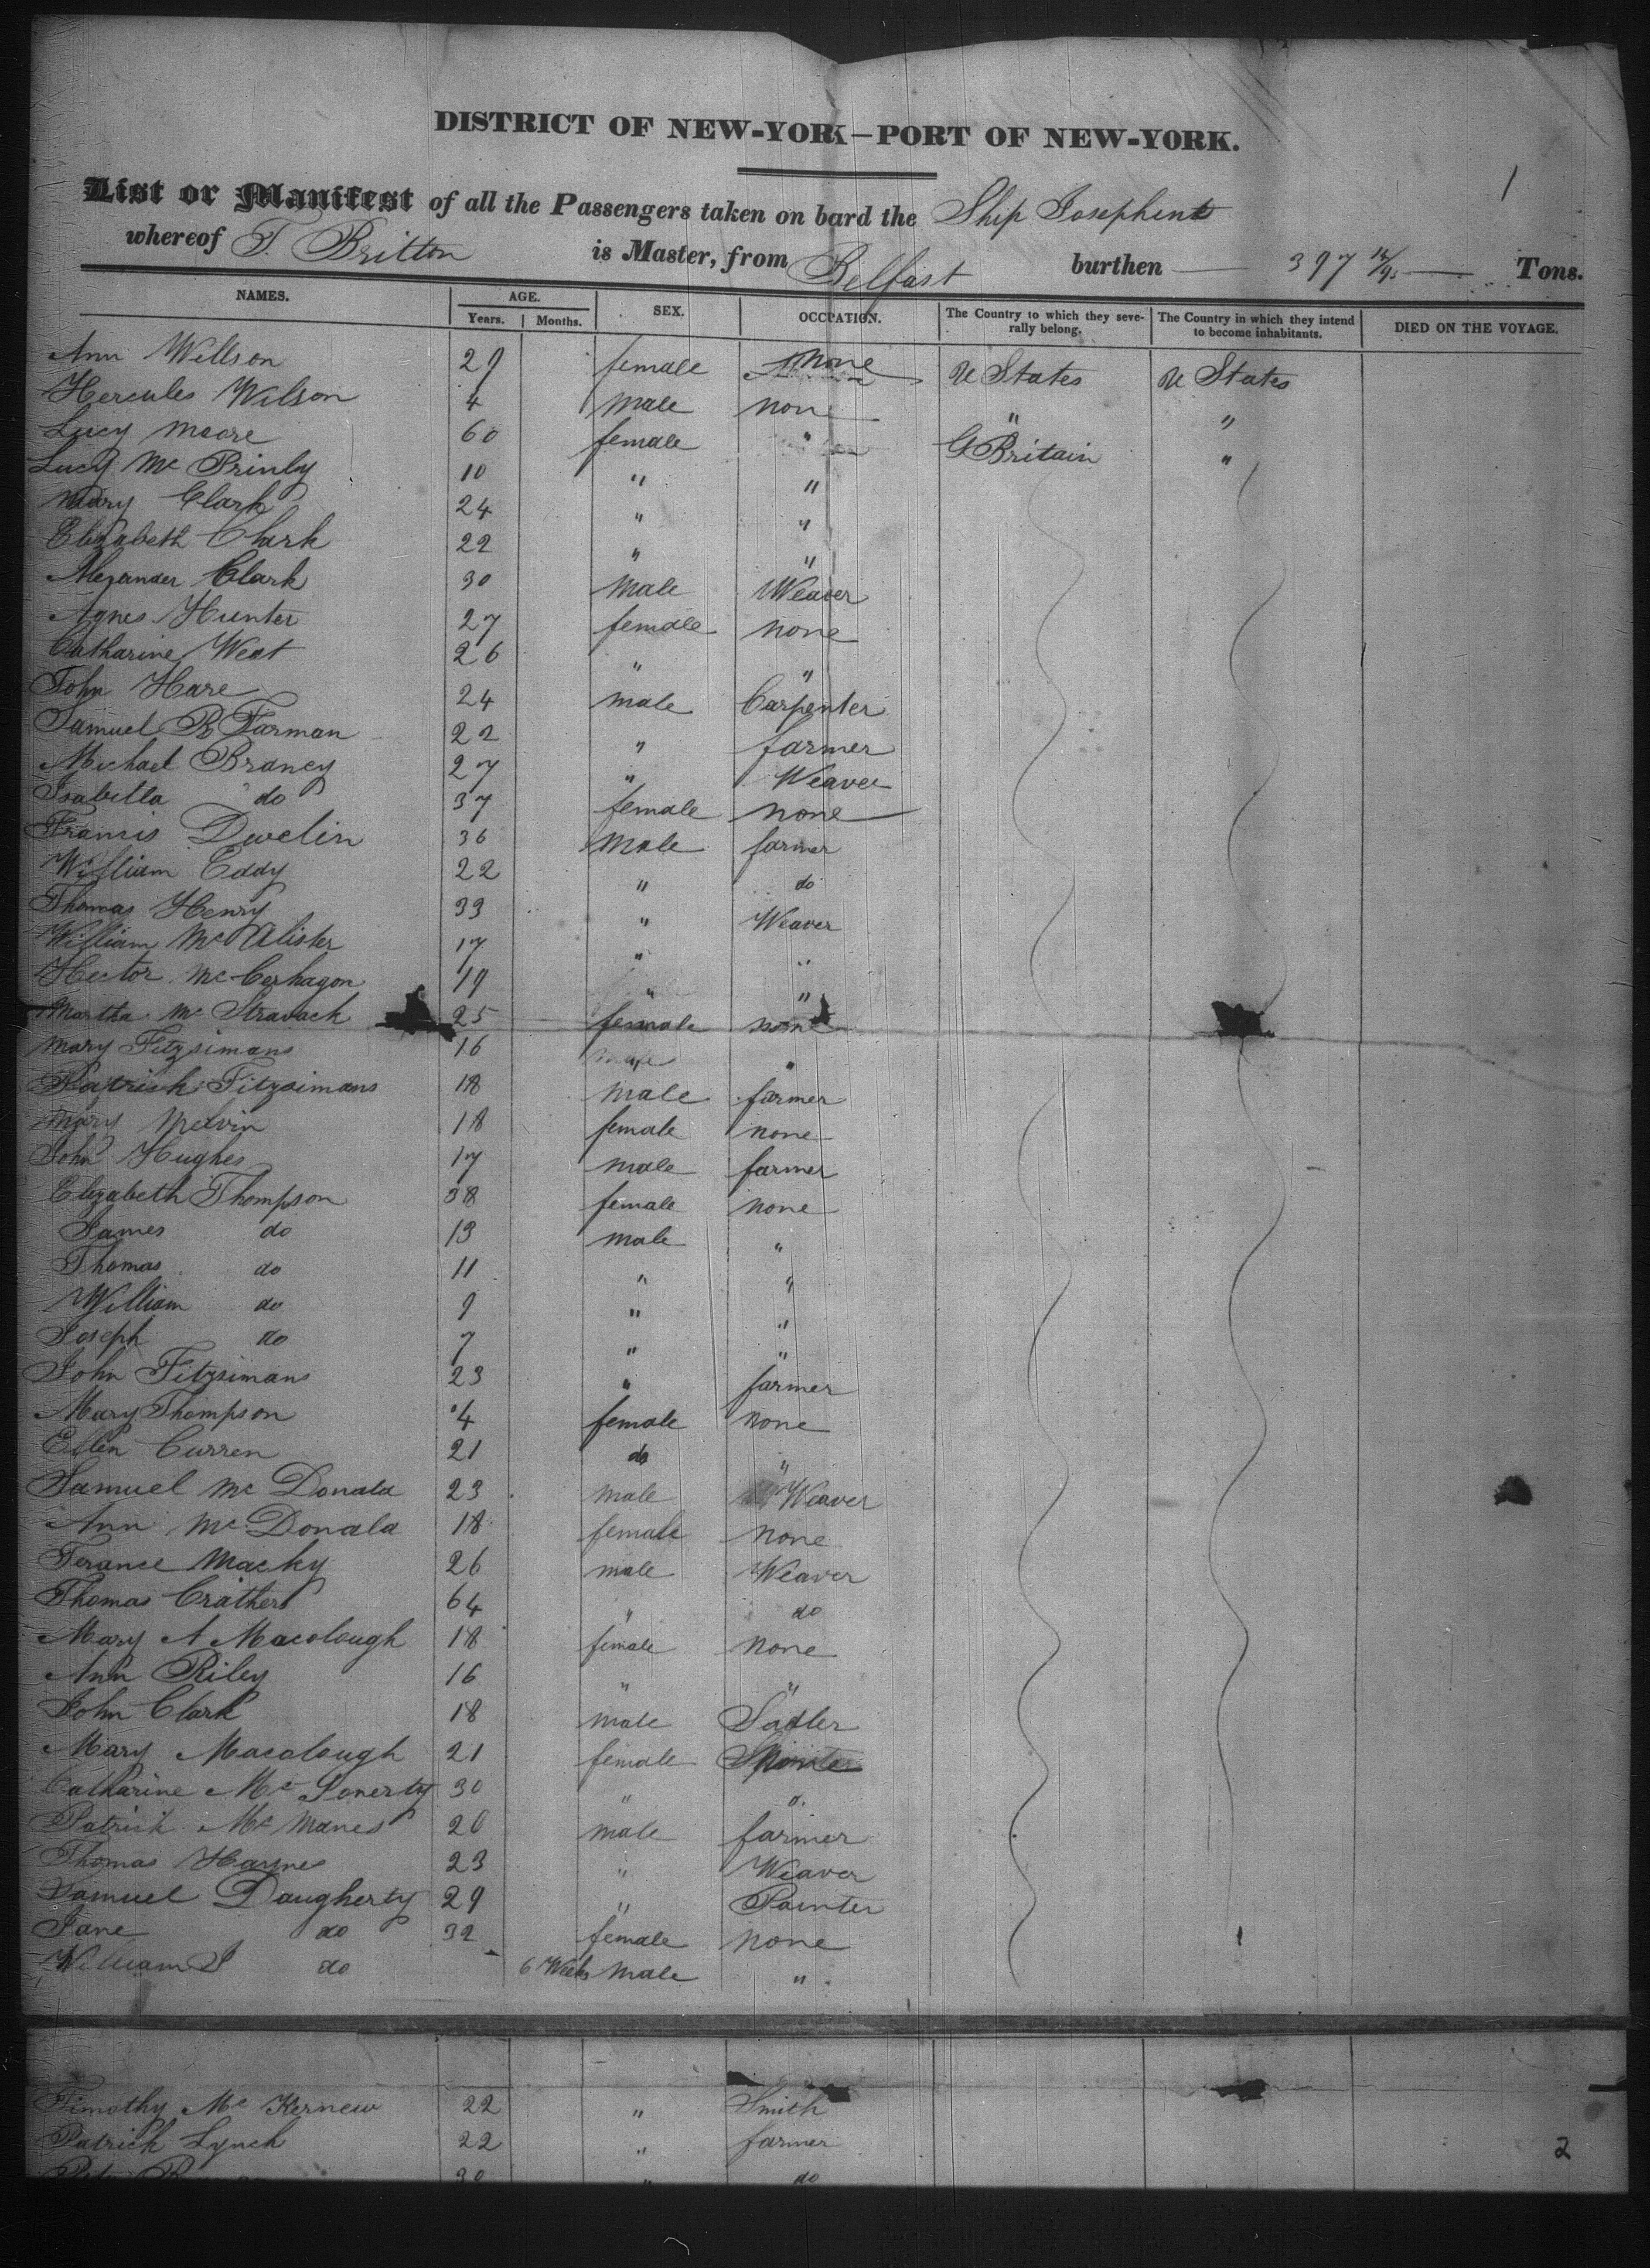 DISTRICT OF NEW-YORK—PORT OF NEW-YORK.
1
List or Manifest of all the Passengers taken on bard the Ship Josephine
whereof T. Britton is Master, from Belfast burthen 397 Tons.
NAMES. AGE. Years. Months. SEX. OCCPATION. The Country to which they severally belong. The Country in which they intend to become inhabitants. DIED ON THE VOYAGE.
Ann Willson 29 female none U States U States
Hercules Wilson 4 male none " "
Lucy Moore 60 female " G Britain "
Lucy Mc 10 " "
Mary Clark 24 " "
Elizabeth Clark 22 " "
Alexander Clark 30 male Weaver
Agnes Hunter 27 female none
Catharine West 26 " "
John Hare 24 male Carpenter
Samuel B Farman 22 " farmer
Michael Brancy 27 " Weaver
Isabella do 37 female none
Francis Dwelin 36 male farmer
William Eddy 22 " do
Thomas Henry 33 " Weaver
William McAlister 17 " "
Hector Mc 19 " "
Martha Mc Stravack 25 female none
Mary Fitzsimans 16 "
Patrick Fitzsimans 18 male farmer
Mary Melvin 18 female none
John Hughes 17 male farmer
Elizabeth Thompson 38 female none
James do 13 male "
Thomas do 11 " "
William do 9 " "
Joseph do 7 " "
John Fitzsimans 23 " farmer
Mary Thompson 4 female none
Ellen Curren 21 do "
Samuel Mc Donald 23 male Weaver
Ann Mc Donald 18 female none
Terance Macky 26 male Weaver
Thomas Crathers 64 " do
Mary A Macolough 18 female none
Ann Riley 16 " "
John Clark 18 male Sadler
Mary Macolough 21 female
Catharine Mc 30 " "
Patrick Mc Manes 20 male farmer
Thomas Haynes 23 " Weaver
Samuel Daugherty 29 " Painter
Jane do 32 female none
William J do 6 Weeks male "
Timothy Mc Kernew 22 " Smith
Patrick Lynch 22 " farmer
2
30 " do